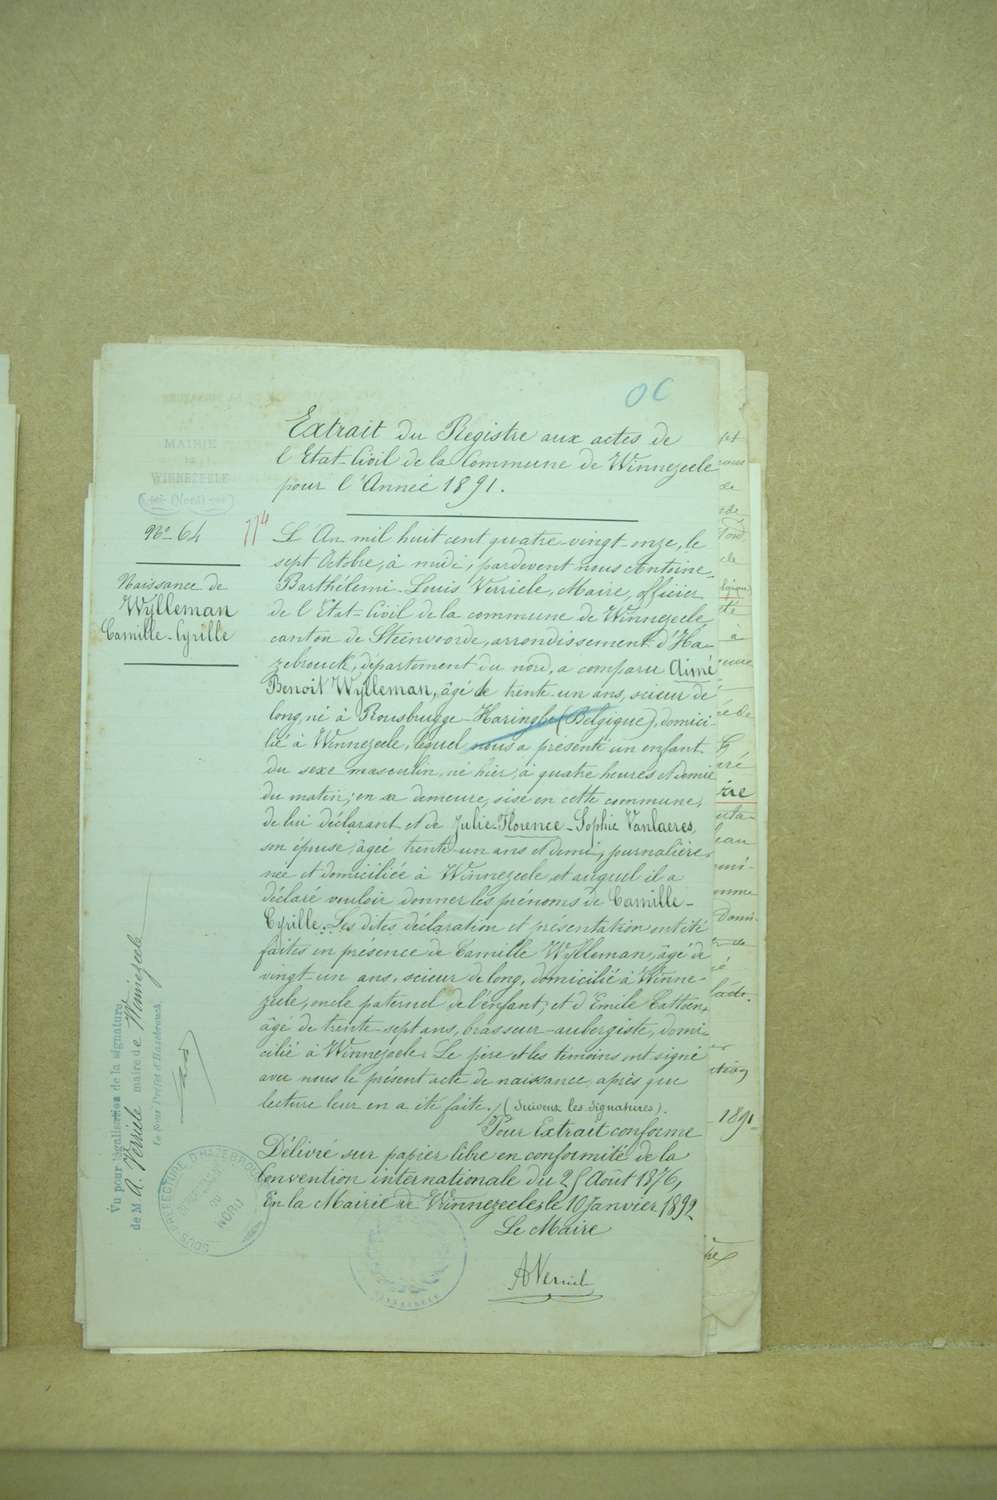 OC
MAIRIE
DE
WINNEZEELE
(Nord)
No 64
Naissance de
Wylleman
Camille-Cyrille
114
Extrait du Registre aux actes de
l'Etat-Civil de la Commune de Winnezeele
pour l'Année 1891.
L'An mil huit cent quatre-vingt-onze, le
sept Octobre, à midi, pardevent nous Antoine-
Barthélemi-Louis Verriele, Maire, officier
de l'Etat-Civil de la commune de Winnezeele,
canton de Steenvoorde, arrondissement d'Ha-
zebrouck, département du nord, a comparu Aimé
Benoit Wylleman, âgé de trente-un ans, scieur de
long, né à Rousbrugge-Haringhe (Belgique), domici-
lié à Winnezeele, lequel nous a présenté un enfant
du sexe masculin, né hier, à quatre heures et demie
du matin, en sa demeure, sise en cette commune,
de lui déclarant et de Julie-Florence-Sophie Vanlaeres,
son épouse, âgée trente-un ans et demi, journalière,
née et domiciliée à Winnezeele, et auquel il a
déclaré vouloir donner les prénoms de Camille-
Cyrille. Les dites déclaration et présentation ont été
faites en présence de Camille Wylleman, âgé de
vingt-un ans, scieur de long, domicilié à Winne-
zeele, oncle paternel de l'enfant, et d'Emile Catteau,
âgé de trente-sept ans, brasseur-aubergiste, domi-
cilié à Winnezeele. Le père et les témoins ont signé
avec nous le présent acte de naissance, après que
lecture leur en a été faite. (Suivent les signatures).
Pour Extrait conforme
Délivré sur papier libre en conformité de la
Convention internationale du 25 Août 1876,
En la Mairie de Winnezeele le 10 Janvier 1892
Le Maire
A Verriele
Vu pour légalisation de la signature
de M. A. Verriele maire de Winnezeele
Le Sous-Préfet d'Hazebrouck
SOUS-PRÉFECTURE D'HAZEBROUCK
NORD
1891